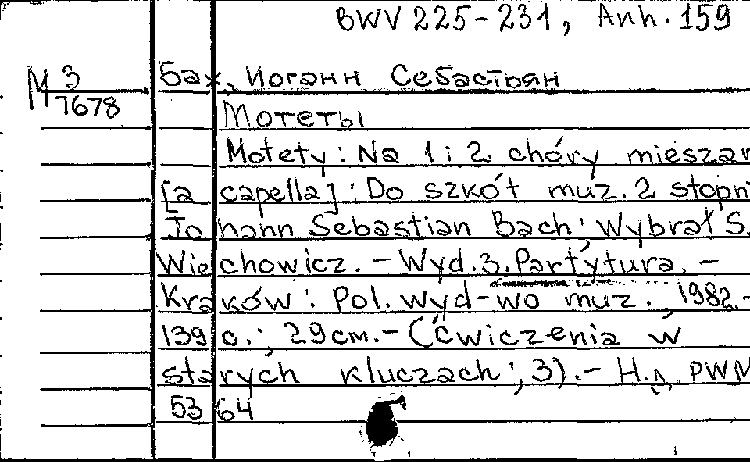 BWV 225-231, Anh. 159
М 3
7678
Бах, Иоганн Себастьян
Мотеты
Motety : Na 1 i 2 chóry mieszan
[a capella] : Do szkół muz. 2 stopni
Johann Sebastian Bach ; Wybrał S.
Wiechowicz. - Wyd. 3. Partytura. -
Kraków : Pol. wyd-wo muz., 1982. -
139 с. ; 29 см. - (Ćwiczenia w
starych kluczach ; 3). - Н.д. PWM
5364